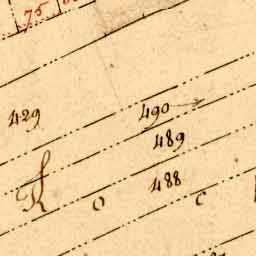 75
429
490
489
488
R o c